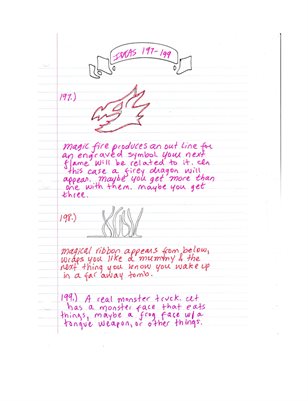 IDEAS 197-199
197.)
Magic fire produces an out line for
an engraved symbol your next
flame will be related to it. in
this case a firey dragon will
appear. maybe you get more than
one with them. maybe you get
three.
198.)
magical ribbon appears from below,
wraps you like a mummy & the
next thing you know you wake up
in a far away tomb.
199.) A real monster truck. it
has a monster face that eats
things, maybe a frog face w/a
tongue weapon, or other things.